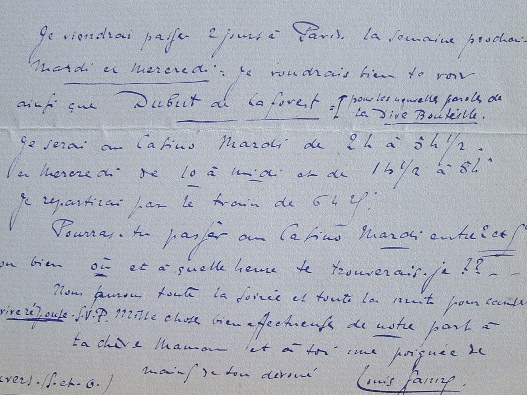 Je viendrai passer 2 jours à Paris. la semaine prochai-
Mardi et Mercredi. Je voudrais bien te voir
ainsi que Dubut de Laforest = pour les nouvelles paroles de
La Dive Bouteille.
Je serai au Casino Mardi de 2h à 5h 1/2.
et Mercredi de 10 à midi et de 1h 1/2 à
Je repartirai par le train de 6 h
Pourras-tu passer au Casino Mardi entre 2 et 5h
ou bien où et à quelle heure te trouverais-je ??
Nous aurons toute la soirée et toute la nuit pour causer
vive réponse. S.V.P. Mille chose bien affectueuses de notre part à
ta chère Maman et à toi une poignée de
mains de ton dévoué Louis Ganne